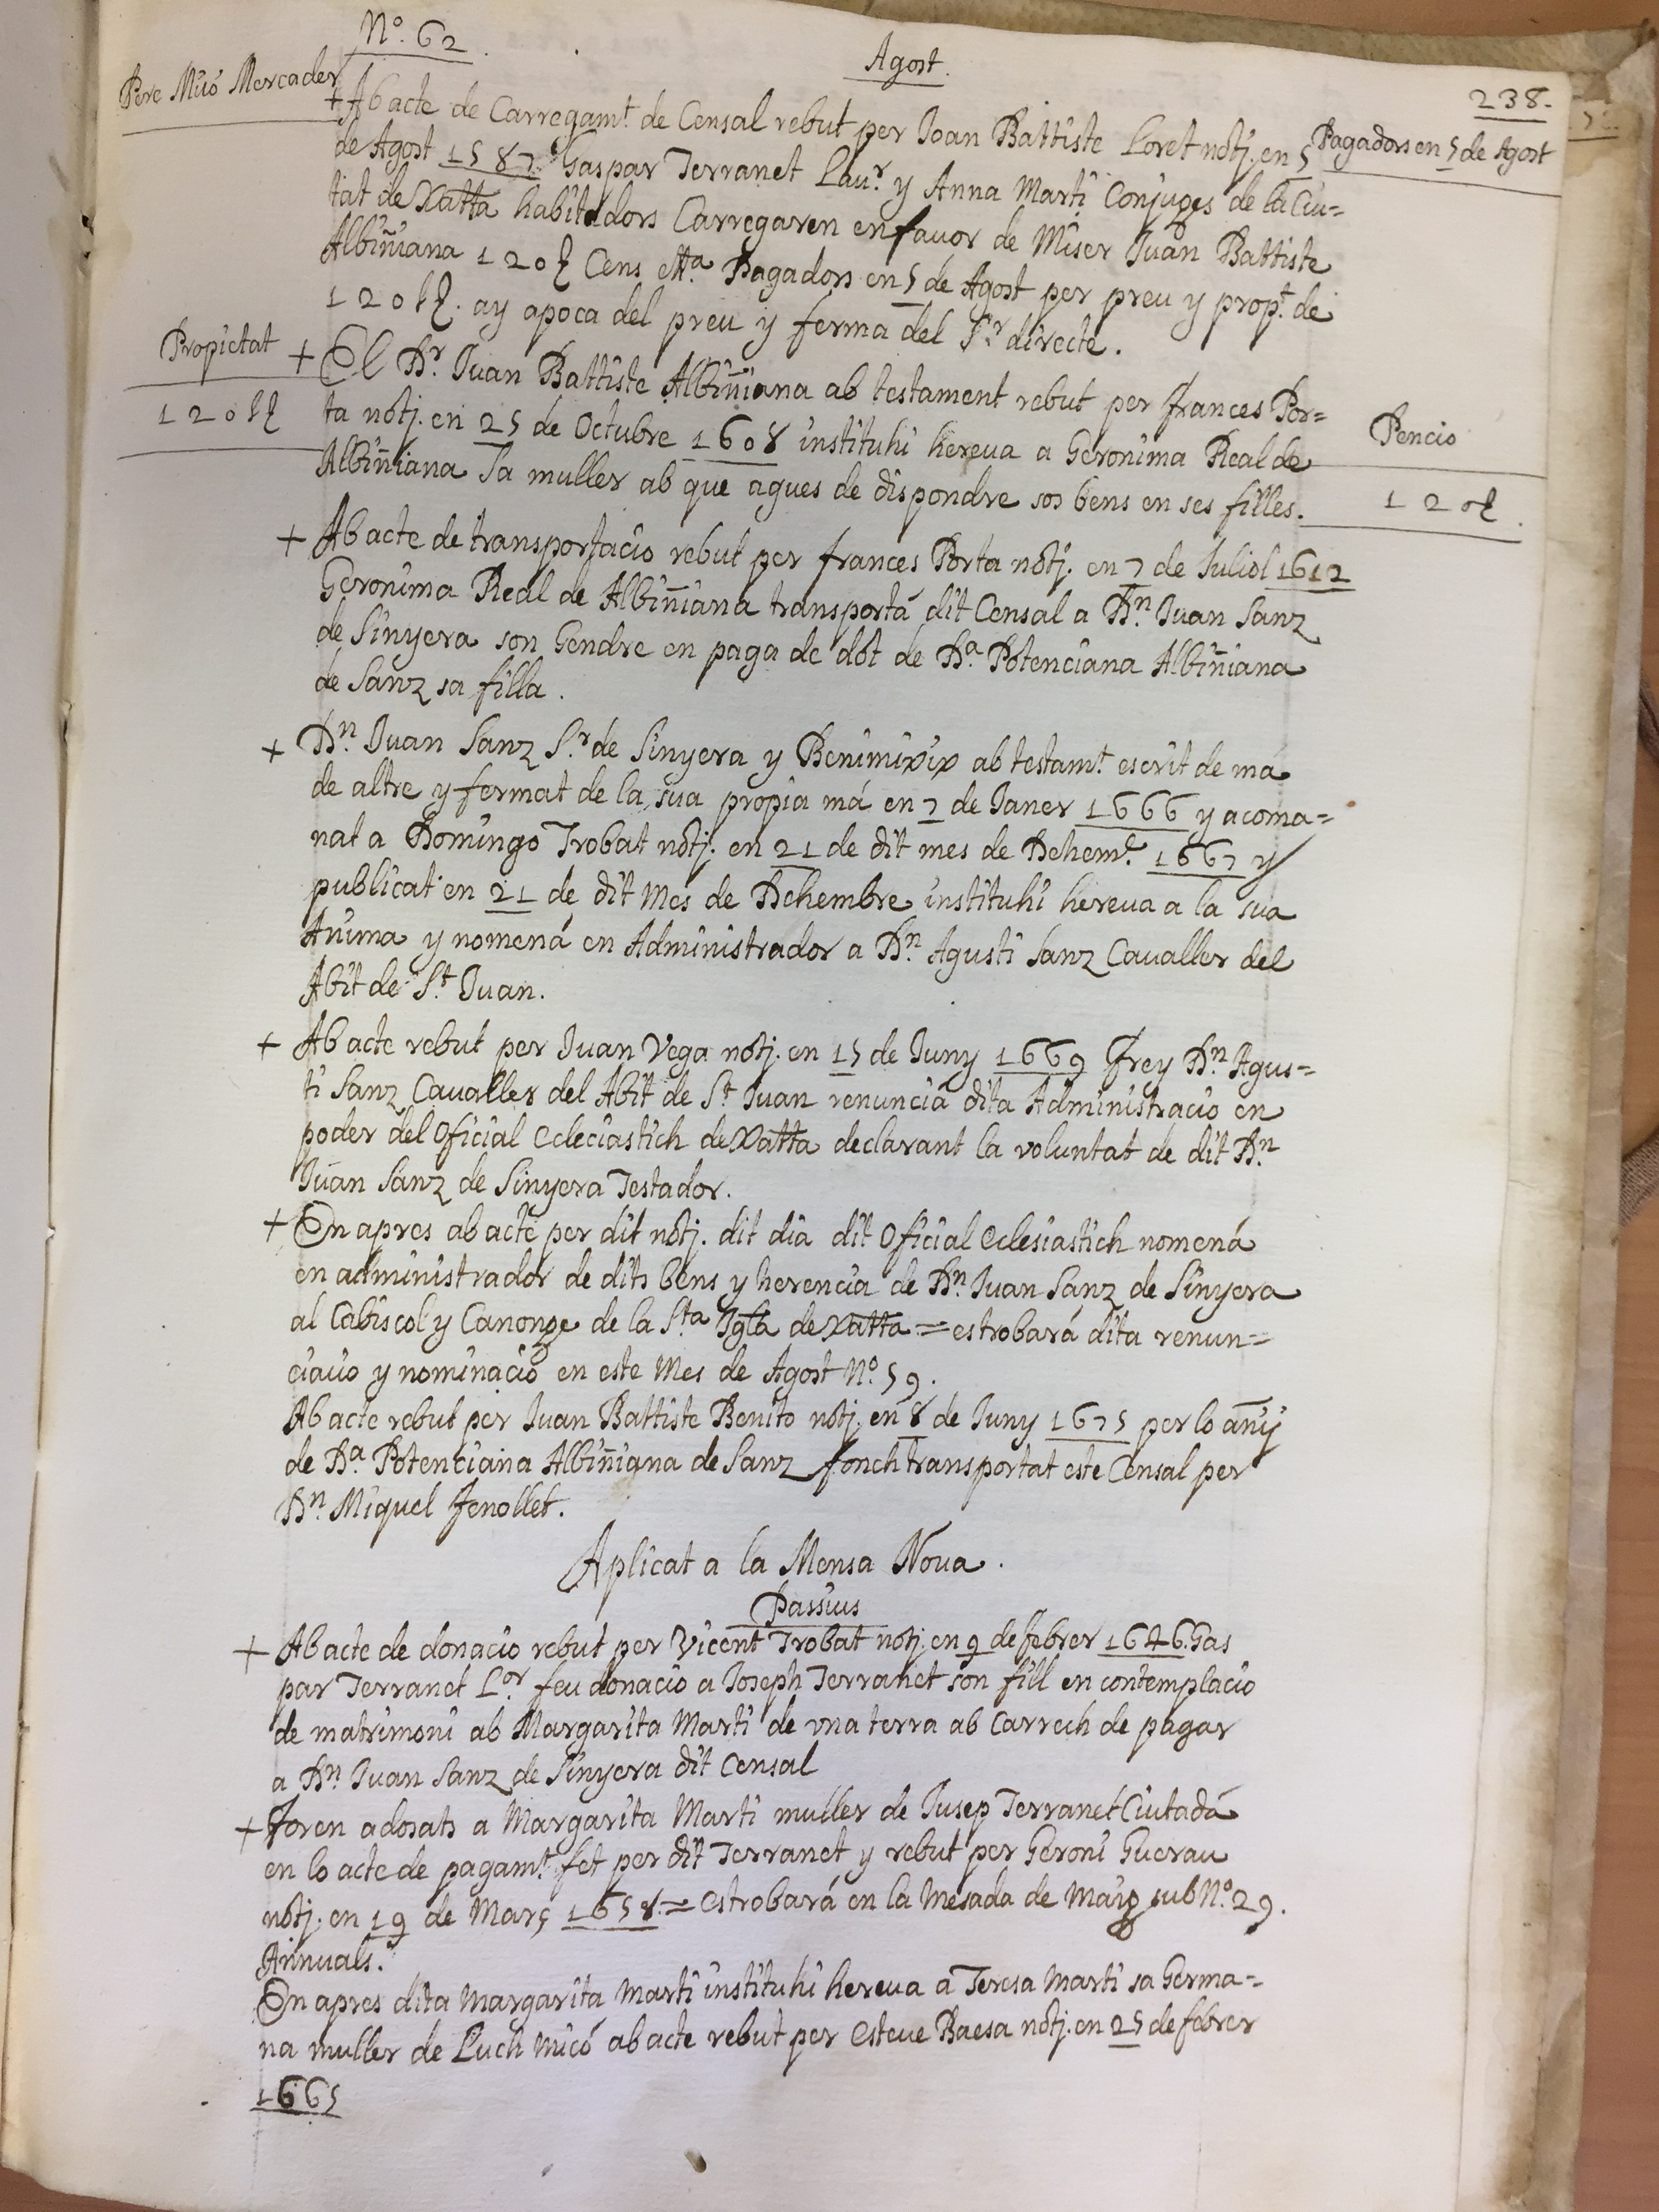 Nº. 62
Agost.
238.
Pere Micó Mercader
+ Ab acte de Carregamt. de Censal rebut per Joan Battiste Loret notj. en 5
Pagadors en 5 de Agost
de Agost 1587. Gaspar Terranet Laur. y Anna Marti Conjuges de la Ciu=
tat de Xatta habitadors Carregaren en favor de Miser Juan Battiste
Albiñiana 120 ſ Cens etta. Pagadors en 5 de Agost per preu y propt. de
120 łł. ay apoca del preu y ferma del Sr. directe.
Propietat
120 łł
+ El Dr. Juan Battiste Albiñiana ab testament rebut per frances Por=
ta notj. en 25 de Octubre 1608 instituhi hereua a Geronima Real de
Albiñiana sa muller ab que agues de dispondre sos bens en ses filles.
Pencio
120 ſ.
+ Ab acte de transportacio rebut per frances Porta notj. en 7 de Juliol 1612
Geronima Real de Albiñiana transportá dit Censal a Dn. Juan Sanz
de Sinyera son Gendre en paga de dot de Da. Potenciana Albiñiana
de Sanz sa filla.
+ Dn. Juan Sanz Sr. de Sinyera y Benimixix ab testamt. escrit de má
de altre y fermat de la sua propia má en 7 de Janer 1666 y acoma=
nat a Domingo Trobat notj. en 21 de dit mes de Dehemr. 1667 y
publicat en 21 de dit Mes de Dehembre instituhi hereua a la sua
Anima y nomená en Administrador a Dn. Agusti Sanz Cavaller del
Abit de St. Juan.
+ Ab acte rebut per Juan Vega notj. en 15 de Juny 1669 frey Dn. Agus=
ti Sanz Cavaller del Abit de St. Juan renunciá dita Administracio en
poder del Oficial Ecleciastich de Xatta declarant la voluntat de dit Dn.
Juan Sanz de Sinyera Testador.
+ En apres ab acte per dit notj. dit dia dit Oficial Eclesiastich nomená
en administrador de dits bens y herencia de Dn. Juan Sanz de Sinyera
al Cabiscol y Canonge de la Sta. Igla de Xatta = estrobará dita renun=
ciacio y nominacio en este Mes de Agost Nº. 59.
Ab acte rebut per Juan Battiste Benito notj. en 8 de Juny 1675 per lo anÿ
de Da. Potenciana Albiñiana de Sanz fonch transportat este Censal per
Dn. Miquel Fenollet.
Aplicat a la Mensa Nova.
Passius
+ Ab acte de donacio rebut per Vicent Trobat notj. en 9 de febrer 1646. Gas
par Terranet Lor. feu donacio a Joseph Terranet son fill en contemplacio
de matrimoni ab Margarita Marti de una terra ab Carrech de pagar
a Dn. Juan Sanz de Sinyera dit Censal
+ Foren adosats a Margarita Marti muller de Jusep Terranet Ciutadá
en lo acte de pagamt. fet per dit Terranet y rebut per Geroni Guerau
notj. en 19 de Març 1658. = estrobará en la Mesada de Maig sub Nº. 29.
Annuals.
En apres dita Margarita Marti instituhi hereua a Teresa Marti sa Germa=
na muller de Luch Micó ab acte rebut per Esteve Baesa notj. en 25 de febrer
1665